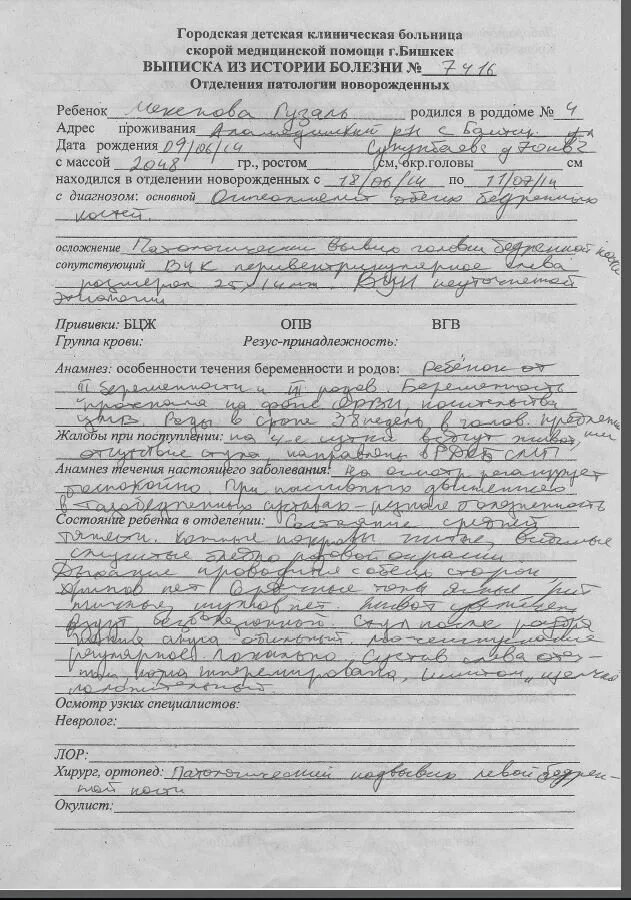 Городская детская клиническая больница
скорой медицинской помощи г.Бишкек
ВЫПИСКА ИЗ ИСТОРИИ БОЛЕЗНИ № 7416
Отделения патологии новорожденных
Ребенок Гузаль родился в роддоме № 4
Адрес проживания Аламединский р-н с
Дата рождения 09/06/14
с массой 2048 гр., ростом см,окр.головы см
находился в отделении новорожденных с 18/06/14 по 11/07/14
с диагнозом: основной Остеомиелит обеих бедренных
костей.
осложнение Патологический вывих головки бедренной кости
сопутствующий ВЧК перивентрикулярное слева
размером 25,/14мм. ВУИ неуточненной
этиологии
Прививки: БЦЖ ОПВ ВГВ
Группа крови: Резус-принадлежность:
Анамнез: особенности течения беременности и родов: Ребёнок от
III беременности и III родов. Беременность
протекала на фоне ОРВИ, носительства
ЦМВ. Роды в сроке 38 недель, в голов. предлежании
Жалобы при поступлении: на 4-е сутки вздут живот,
отсутствие стула, направлен в
Анамнез течения настоящего заболевания: На осмотр реагирует
беспокойно. При пассивных движениях
в тазобедренных суставах - резкая болезненность
Состояние ребенка в отделении: Состояние средней
тяжести. Кожные покровы чистые, видимые
слизистые бледно розовой окраски.
Дыхание проводится с обеих сторон,
хрипов нет. Сердечные тоны ясные, рит
мичные, шумов нет. Живот увеличен
вздут безболезненный. Стул после
регулярное. Локально: Сустав слева отё-
чен, кожа гиперемирована, симптом "щелчка"
положительный
Осмотр узких специалистов:
Невролог:
ЛОР:
Хирург, ортопед: Патологический подвывих левой бедрен-
ной кости
Окулист: